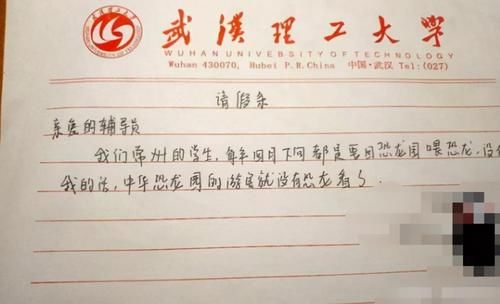 武汉理工大学
WUHAN UNIVERSITY OF TECHNOLOGY
Wuhan 430070, Hubei P.R.China 中国·武汉 Tel:(027)
请假条
亲爱的辅导员
我们常州的学生,每年四月下旬都是要回恐龙园喂恐龙,没有
我的话,中华恐龙园的游客就没有恐龙看了.